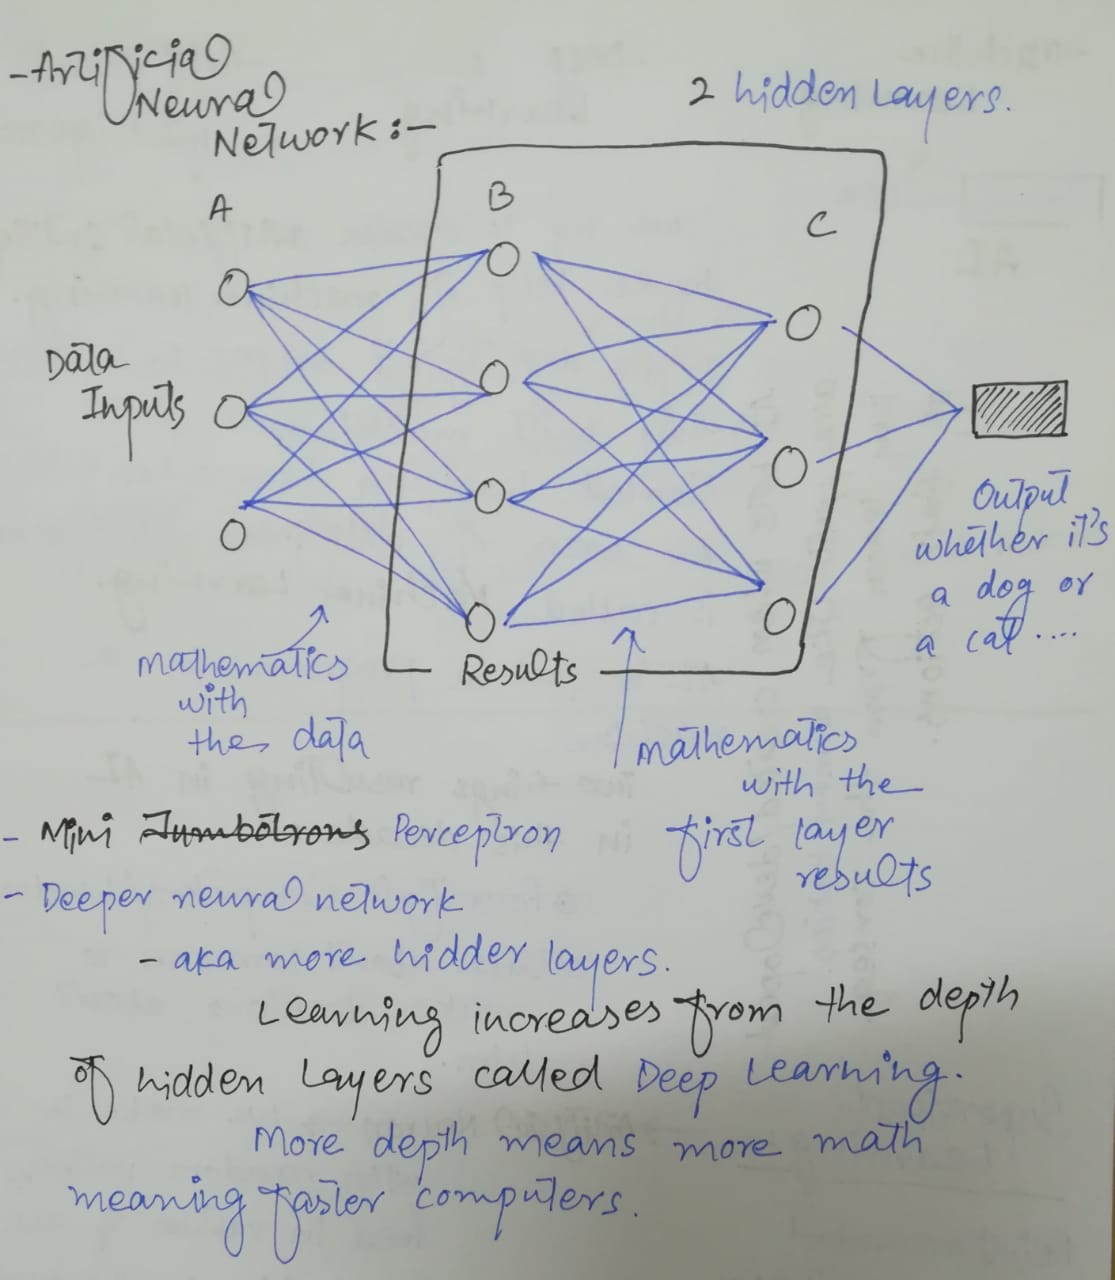 -Artificial
Neural
Network:-
2 hidden Layers.
A
B
C
Data
Inputs
Output
whether it's
a dog or
a cat ....
Results
mathematics
with
the data
mathematics
with the
first layer
results
- Mini Jumbotrons Perceptron
- Deeper neural network
- aka more hidder layers.
Learning increases from the depth
of hidden Layers called Deep Learning.
More depth means more math
meaning faster computers.